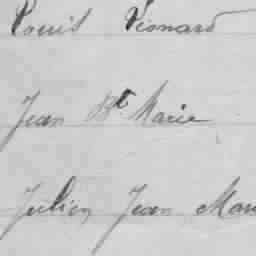 Louis Léonard
Jean Bte Marie
Julien Jean